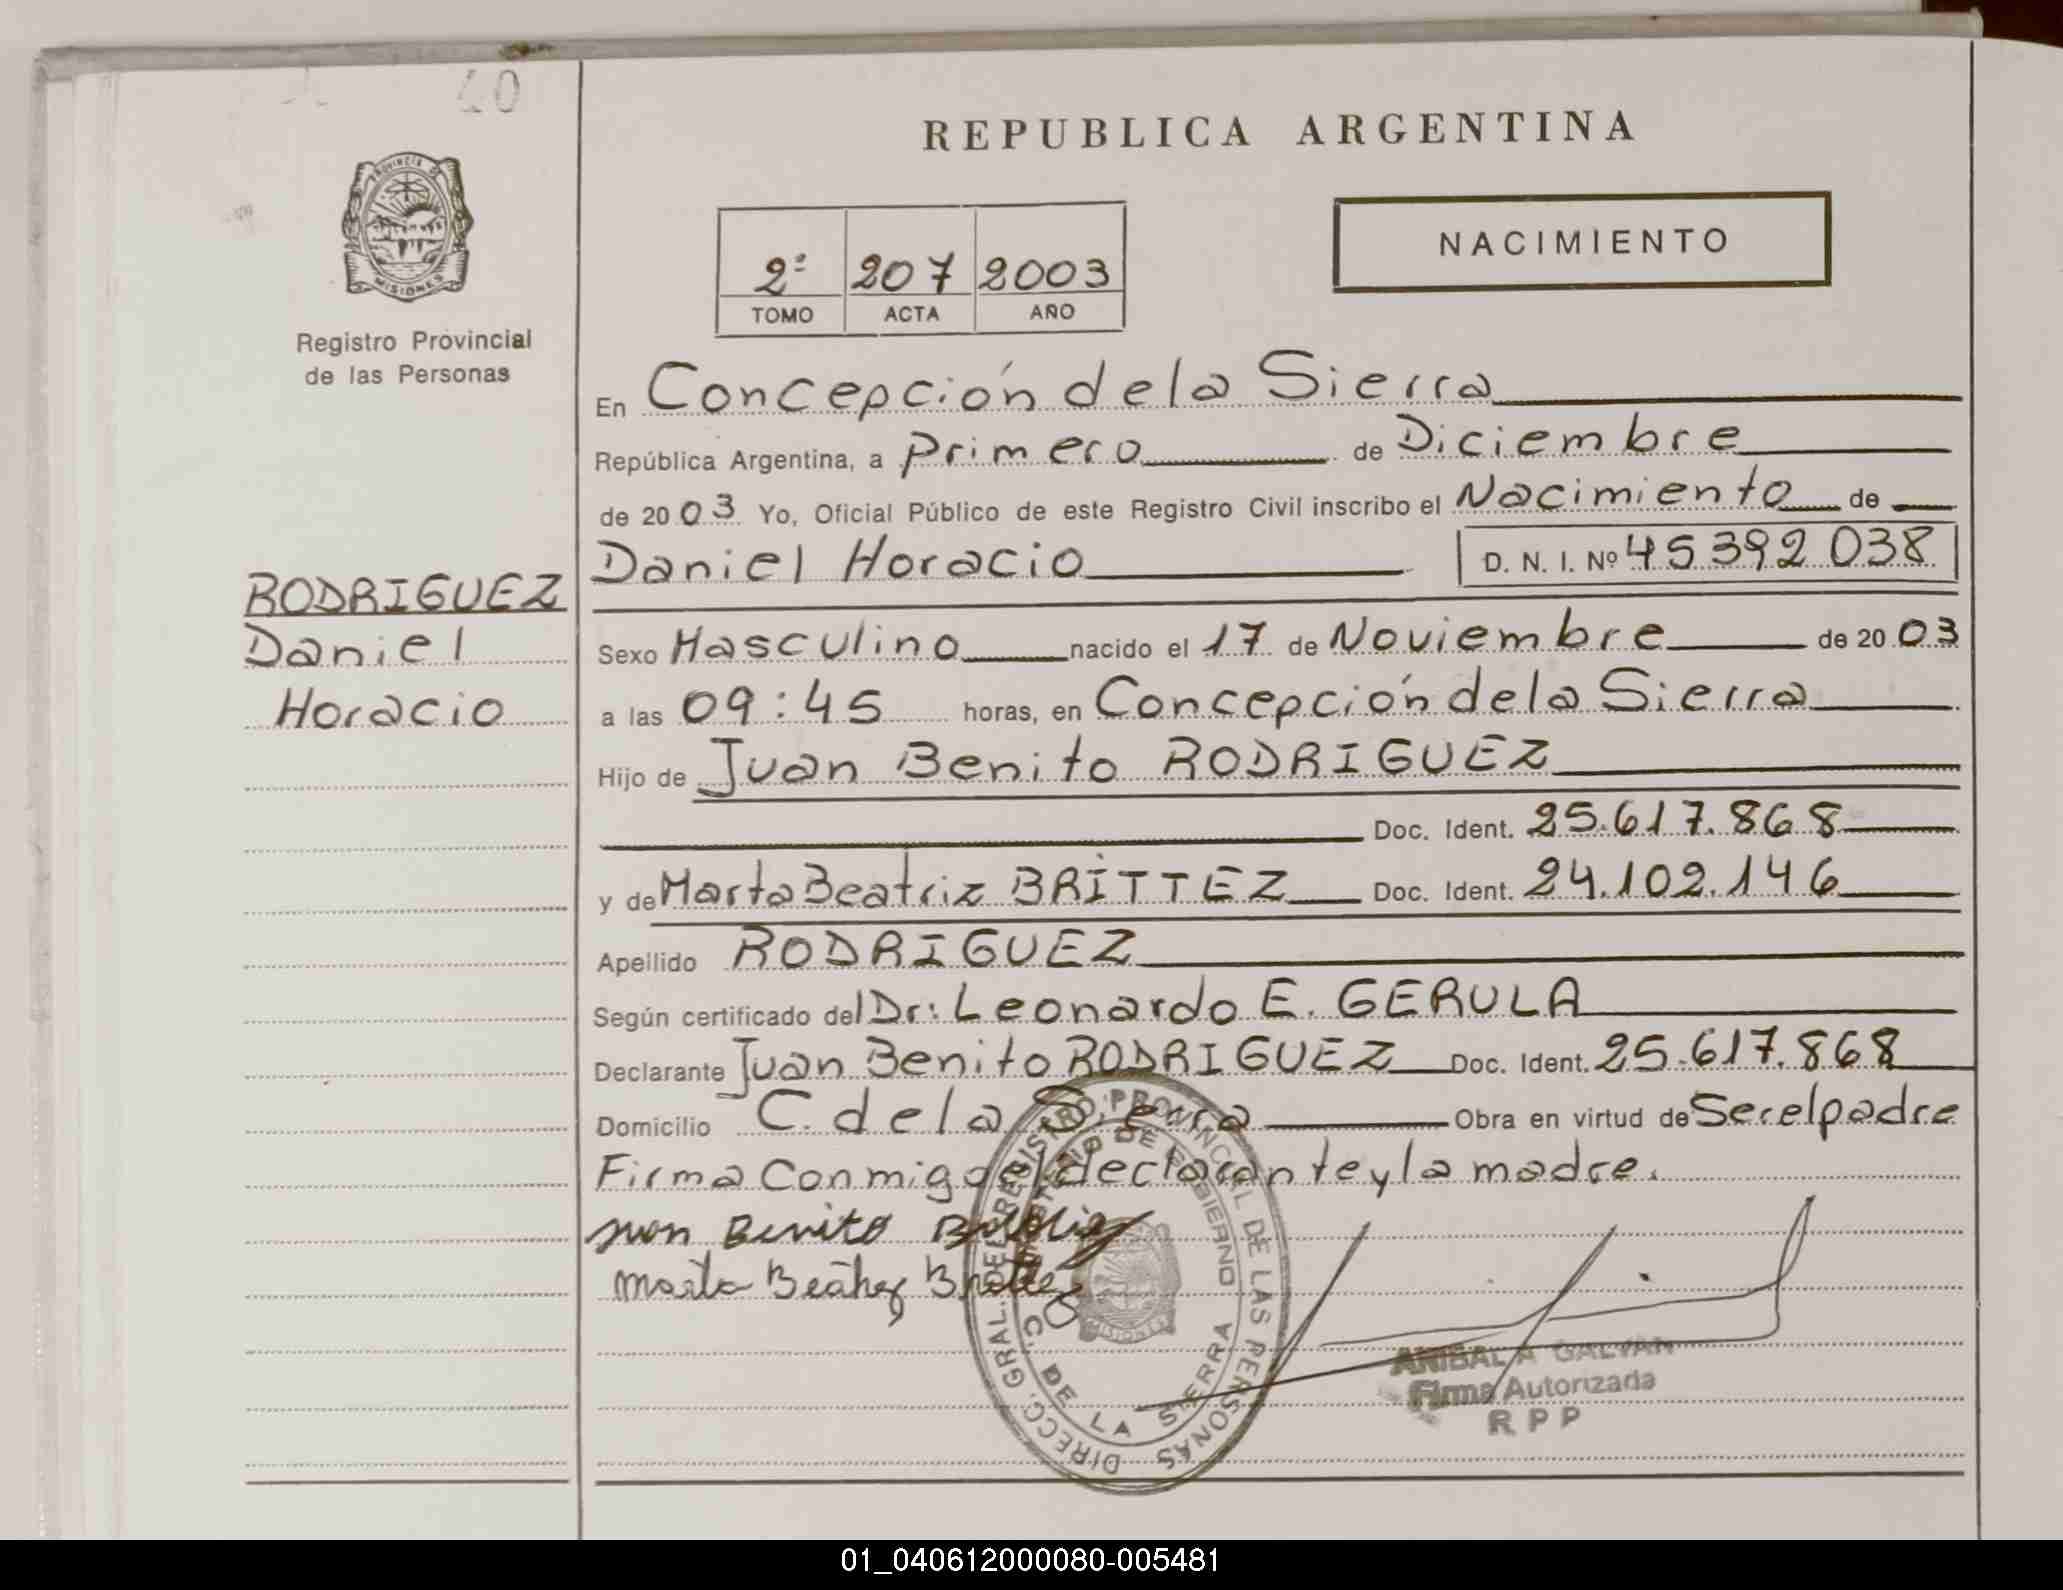 10
PROVINCIA DE
MISIONES
Registro Provincial
de las Personas
RODRIGUEZ
Daniel
Horacio
REPUBLICA ARGENTINA
NACIMIENTO
2º 207 2003
TOMO ACTA AÑO
En Concepción de la Sierra
República Argentina, a Primero de Diciembre
de 2003 Yo, Oficial Público de este Registro Civil inscribo el Nacimiento de
Daniel Horacio D. N. I. Nº 45392038
Sexo Masculino nacido el 17 de Noviembre de 2003
a las 09:45 horas, en Concepción de la Sierra
Hijo de Juan Benito RODRIGUEZ
Doc. Ident. 25.617.868
y de Marta Beatriz BRITTEZ Doc. Ident. 24.102.146
Apellido RODRIGUEZ
Según certificado del Dr: Leonardo E. GERULA
Declarante Juan Benito RODRIGUEZ Doc. Ident. 25.617.868
Domicilio C. de la Sierra Obra en virtud de Ser el padre
Firma Conmigo el declarante y la madre.
Juan Benito
Marta Beatriz Brittez
DIRECC. GRAL. DEL REGISTRO PROVINCIAL DE LAS PERSONAS
MINISTERIO DE GOBIERNO
C. DE LA SIERRA
MISIONES
ANIBAL A GALVAN
Firma Autorizada
R P P
01_040612000080-005481